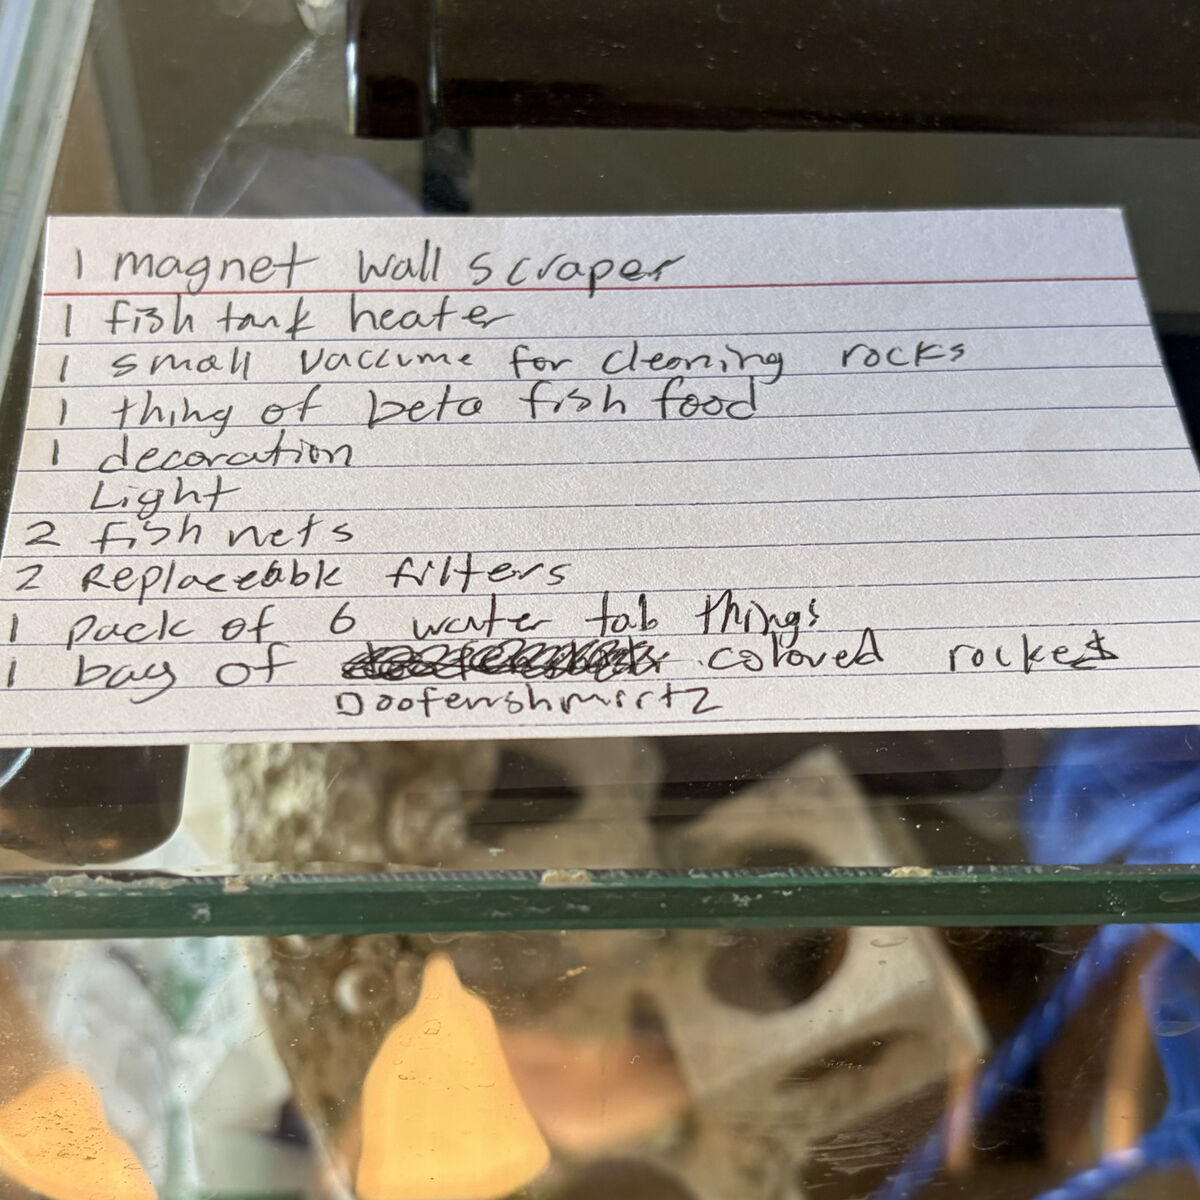 1 magnet wall scraper
1 fish tank heater
1 small vaccume for cleaning rocks
1 thing of beta fish food
1 decoration
Light
2 fish nets
2 Replaceable filters
1 pack of 6 water tab things
1 bag of colored
Doofenshmirtz